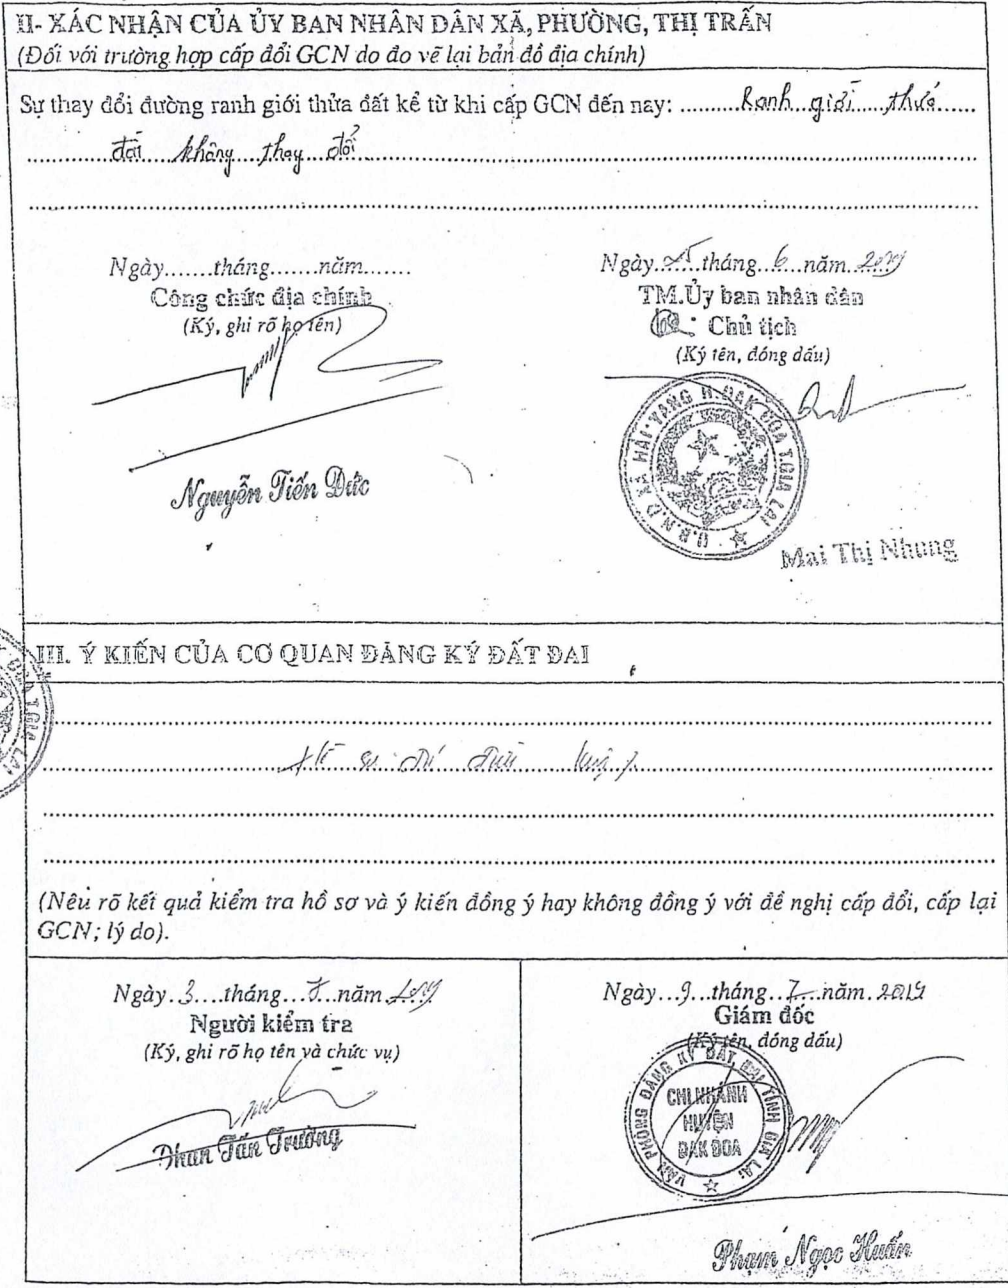 II- XÁC NHẬN CỦA ỦY BAN NHÂN DÂN XÃ, PHƯỜNG, THỊ TRẤN
(Đối với trường hợp cấp đổi GCN do đo vẽ lại bản đồ địa chính)
Sự thay đổi đường ranh giới thửa đất kể từ khi cấp GCN đến nay: ..........Ranh giới thửa......
............đất không thay đổi............
Ngày.......tháng.......năm.......
Công chức địa chính
(Ký, ghi rõ họ tên)
Nguyễn Tiến Đức
Ngày 25 tháng 6 năm
TM.Ủy ban nhân dân
Chủ tịch
(Ký tên, đóng dấu)
U.B.N.D XÃ HẢI YANG H.ĐAK ĐOA T.GIA LAI
Mai Thị Nhung
T.GIA LAI
III. Ý KIẾN CỦA CƠ QUAN ĐĂNG KÝ ĐẤT ĐAI
(Nêu rõ kết quả kiểm tra hồ sơ và ý kiến đồng ý hay không đồng ý với đề nghị cấp đổi, cấp lại
GCN; lý do).
Ngày 3 tháng năm
Người kiểm tra
(Ký, ghi rõ họ tên và chức vụ)
Phan Tấn Trường
Ngày 9 tháng 7 năm 2019
Giám đốc
(Ký tên, đóng dấu)
VĂN PHÒNG ĐĂNG KÝ ĐẤT ĐAI TỈNH GIA LAI
CHI NHÁNH
HUYỆN
ĐAK ĐOA
Phạm Ngọc Huấn